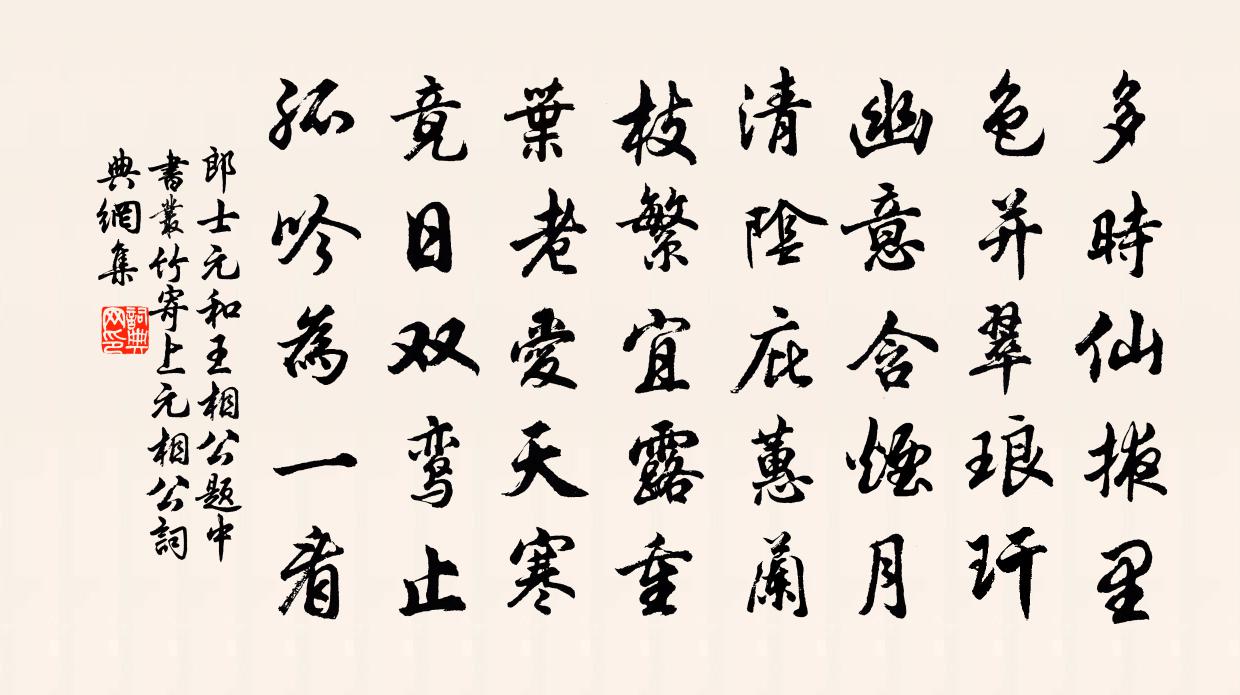 多時仙掖里
色并翠琅玕
幽意含煙月
清陰庇蕙蘭
枝繁宜露重
葉老愛天寒
竟日双鸾止
孤吟為一看
郎士元和王相公题中
書叢竹寄上元相公詞
典網集
詞典
网印